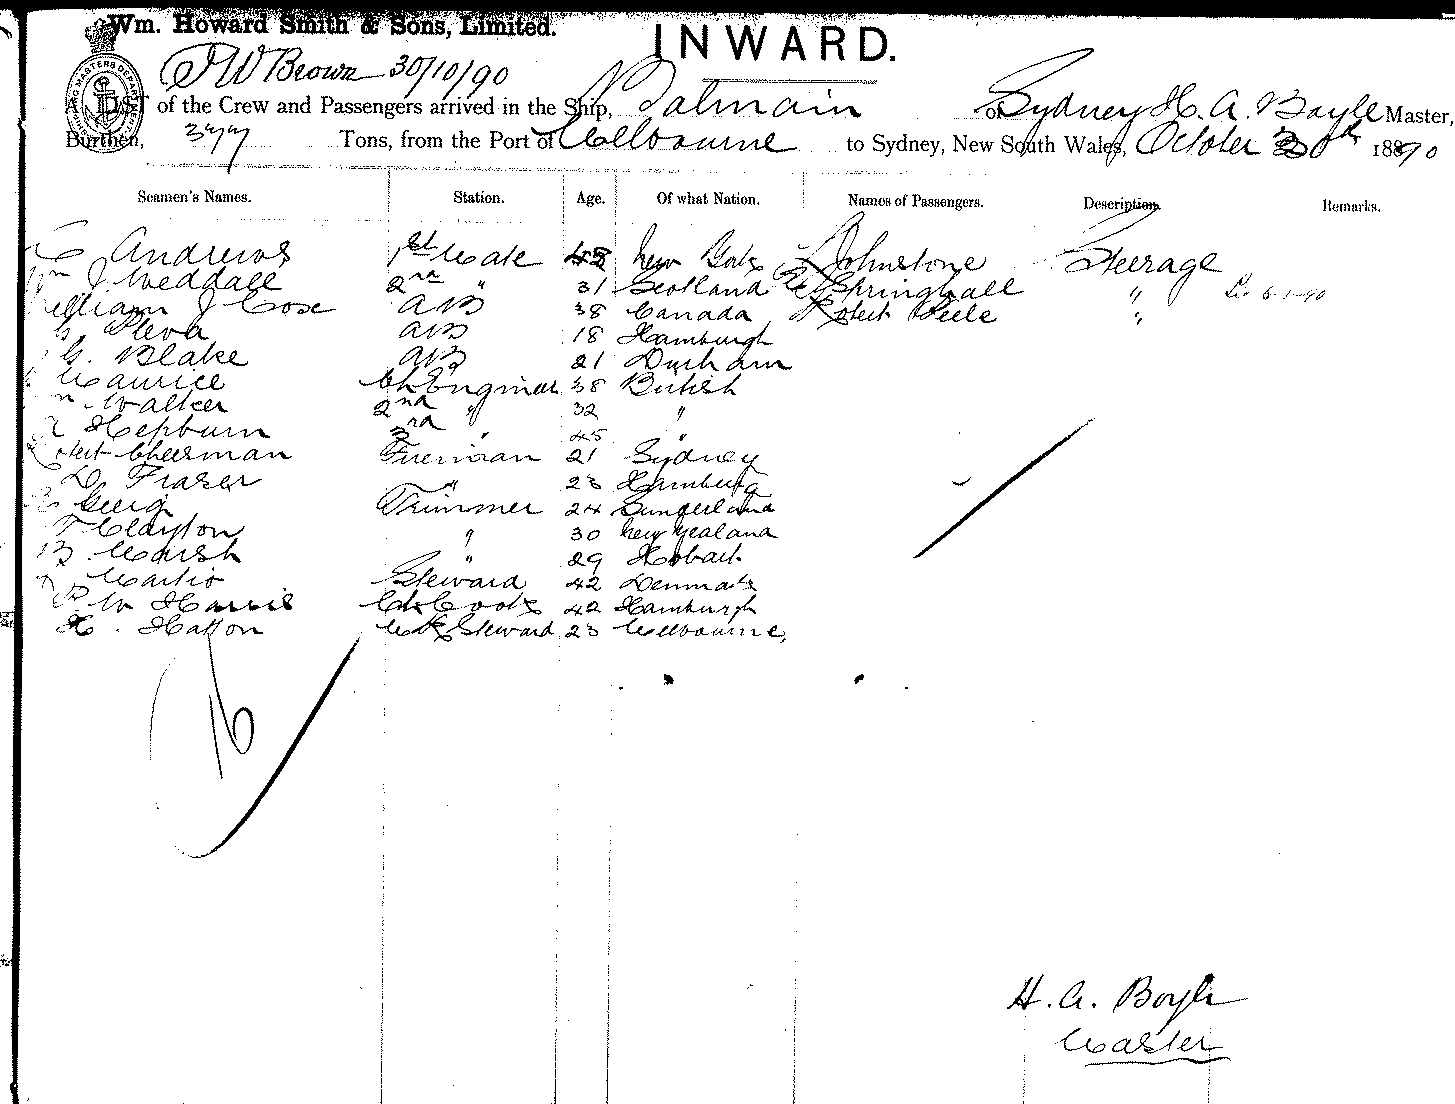 Wm. Howard Smith & Sons, Limited.
INWARD.
J W Brown 30/10/90
A LIST of the Crew and Passengers arrived in the Ship, Balmain of Sydney H. A. Boyle Master,
Burthen, Tons, from the Port of Melbourne to Sydney, New South Wales, October 30th 1890
Seamen's Names. Station. Age. Of what Nation. Names of Passengers. Description. Remarks.
Andrews 1st Mate 48 New York Johnstone Steerage
J. Weddall 2nd " 31 Scotland Springhall "
William J Cox AB 38 Canada Robert Peele "
AB 18 Hamburgh
G. Blake AB 21 Durham
Maurice Ch Engineer 38 British
Walker 2nd " 32 "
Hepburn 3rd " 45 "
Robert Cheesman Fireman 21 Sydney
D. Fraser " 23 Hamburg
Trimmer 24 Sunderland
Clayton " 30 New Zealand
Marsh " 29 Hobart
Martin Steward 42 Denmark
W Harris Ch Cook 42 Hamburgh
H. Hatton Steward 23 Melbourne,
16
H. A. Boyle
Master